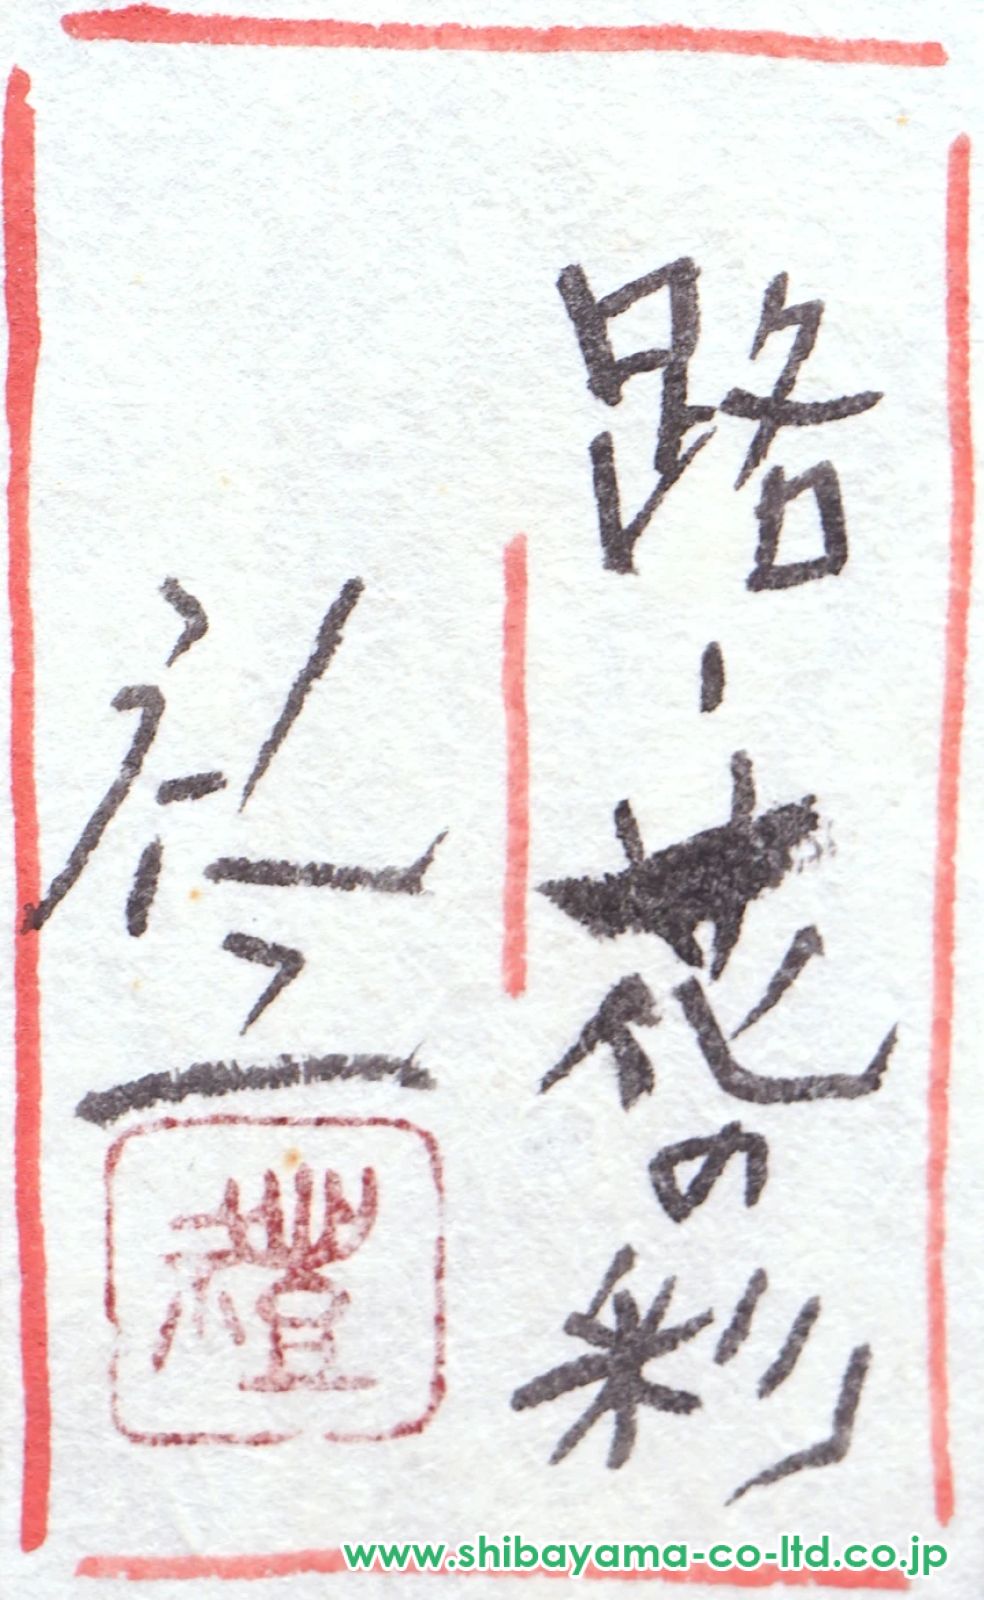 路-花の彩
礼二
禮
www.shibayama-co-ltd.co.jp